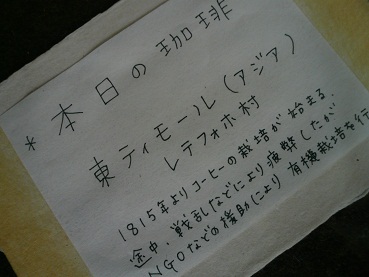 * 本日の珈琲
東ティモール(アジア)
レテフォホ村
1815年よりコーヒーの栽培が始まる.
途中、戦乱などにより疲弊したが
NGOなどの援助により 有機栽培を行